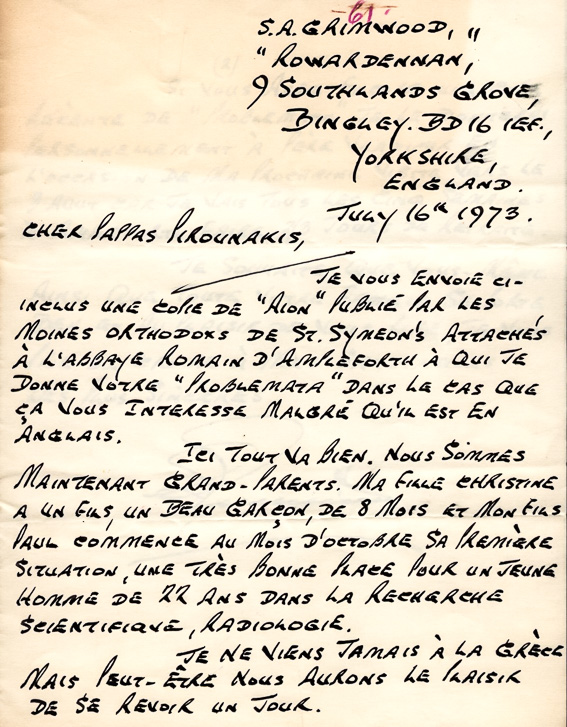 -61-
S.A. GRIMWOOD, "
"ROWARDENNAN,
9 SOUTHLANDS GROVE,
BINGLEY. BD16 1EF.,
YORKSHIRE,
ENGLAND.
JULY 16th 1973.
CHER PAPPAS PIROUNAKIS,
JE VOUS ENVOIE CI-
INCLUS UNE COPIE DE "AION" PUBLIÉ PAR LES
MOINES ORTHODOXS DE ST. SYMEON'S ATTACHÉS
À L'ABBAYE ROMAIN D'AMPLEFORTH À QUI JE
DONNE VOTRE "PROBLEMATA" DANS LE CAS QUE
ÇA VOUS INTERESSE MALGRÉ QU'IL EST EN
ANGLAIS.
ICI TOUT VA BIEN. NOUS SOMMES
MAINTENANT GRAND-PARENTS. MA FILLE CHRISTINE
A UN FILS, UN BEAU GARÇON, DE 8 MOIS ET MON FILS
PAUL COMMENCE AU MOIS D'OCTOBRE SA PREMIÈRE
SITUATION, UNE TRÈS BONNE PLACE POUR UN JEUNE
HOMME DE 22 ANS DANS LA RECHERCHE
SCIENTIFIQUE, RADIOLOGIE.
JE NE VIENS JAMAIS À LA GRÈCE
MAIS PEUT-ÊTRE NOUS AURONS LE PLAISIR
DE SE REVOIR UN JOUR.